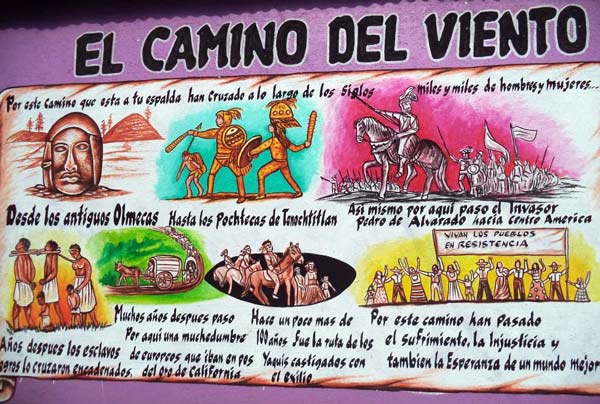 EL CAMINO DEL VIENTO
Por este camino que esta a tu espalda han cruzado a lo largo de los siglos miles y miles de hombres y mujeres...
Desde los antiguos Olmecas
Hasta los Pochtecas de Tenochtitlan
Asi mismo por aqui paso el Invasor
Pedro de Alvarado hacia centro America
VIVAN LOS PUEBLOS
EN RESISTENCIA
Años despues los esclavos
negros lo cruzaron encadenados.
Muchos años despues paso
Por aqui una muchedumbre
de europeos que iban en pos
del oro de California.
Hace un poco mas de
100 años Fue la ruta de los
Yaquis castigados con
el exilio
Por este camino han pasado
el sufrimiento, la Injusticia y
tambien la Esperanza de un mundo mejor